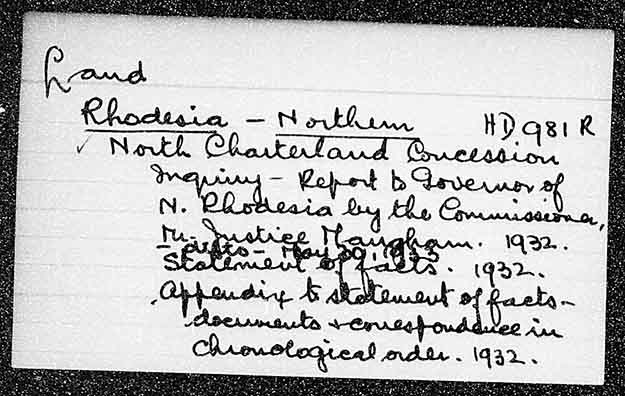 Land
Rhodesia - Northern HD 981 R
✓ North Charterland Concession
Inquiry - Report to Governor of
N. Rhodesia by the Commissioner,
Mr. Justice Maugham. 1932.
- May 30, 1933
Statement of facts. 1932.
Appendix to statement of facts -
documents + correspondence in
chronological order. 1932.